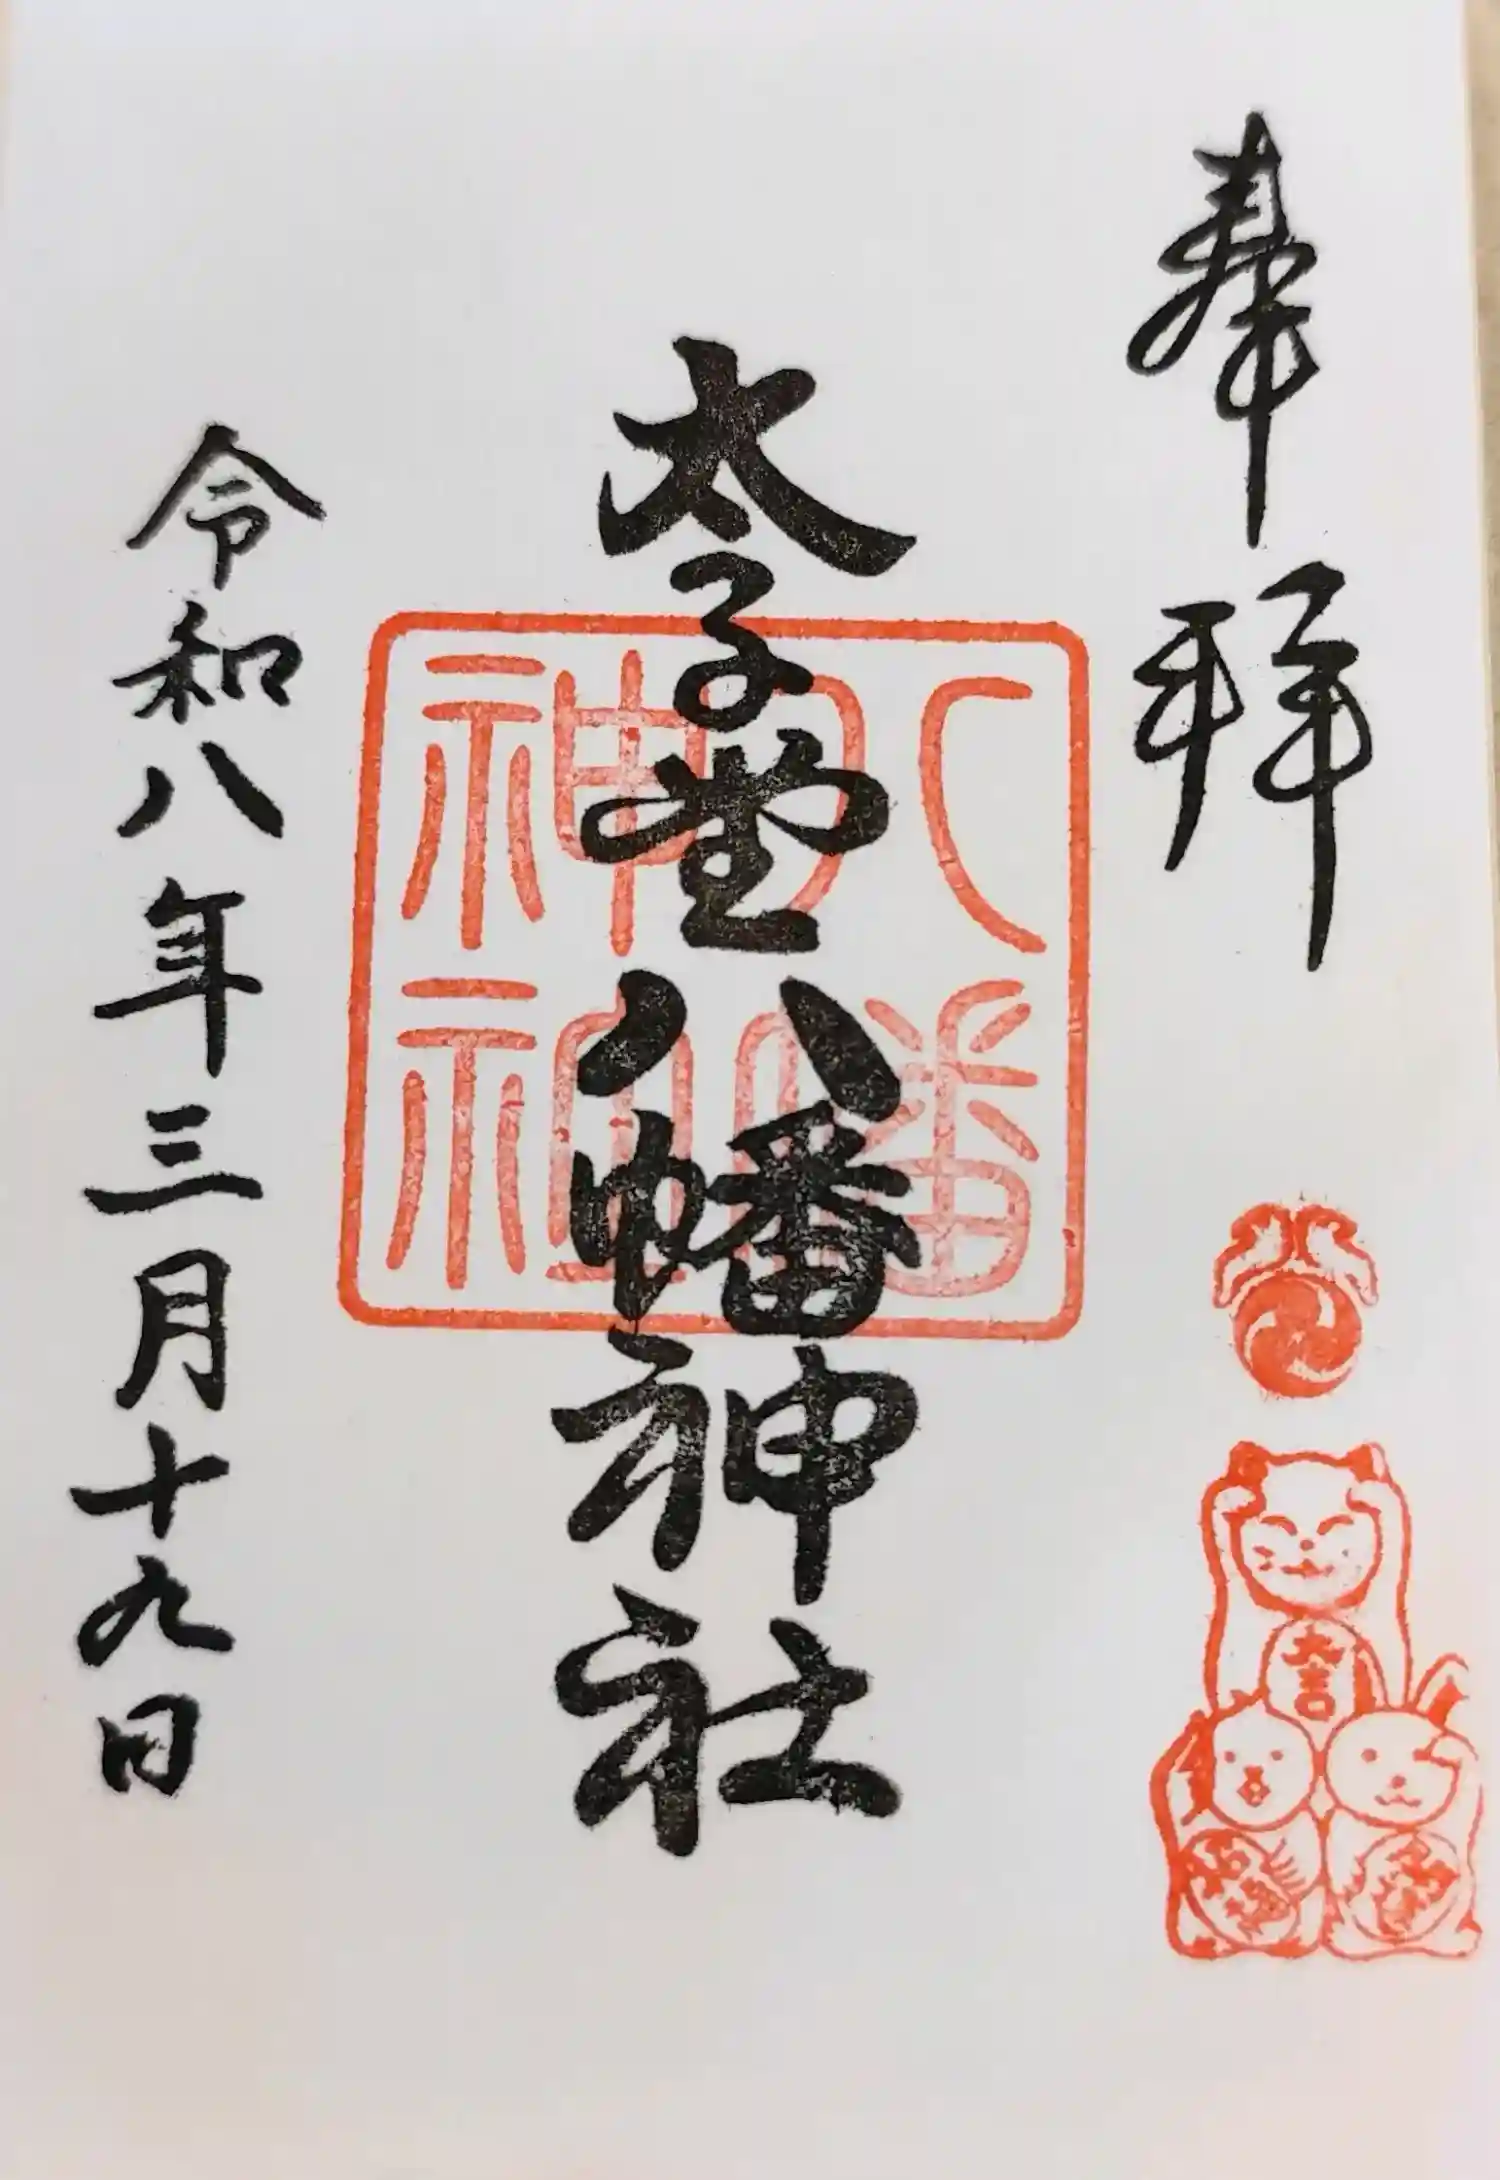 奉拝
太子堂八幡神社
八幡
神社
令和八年三月十九日
大吉